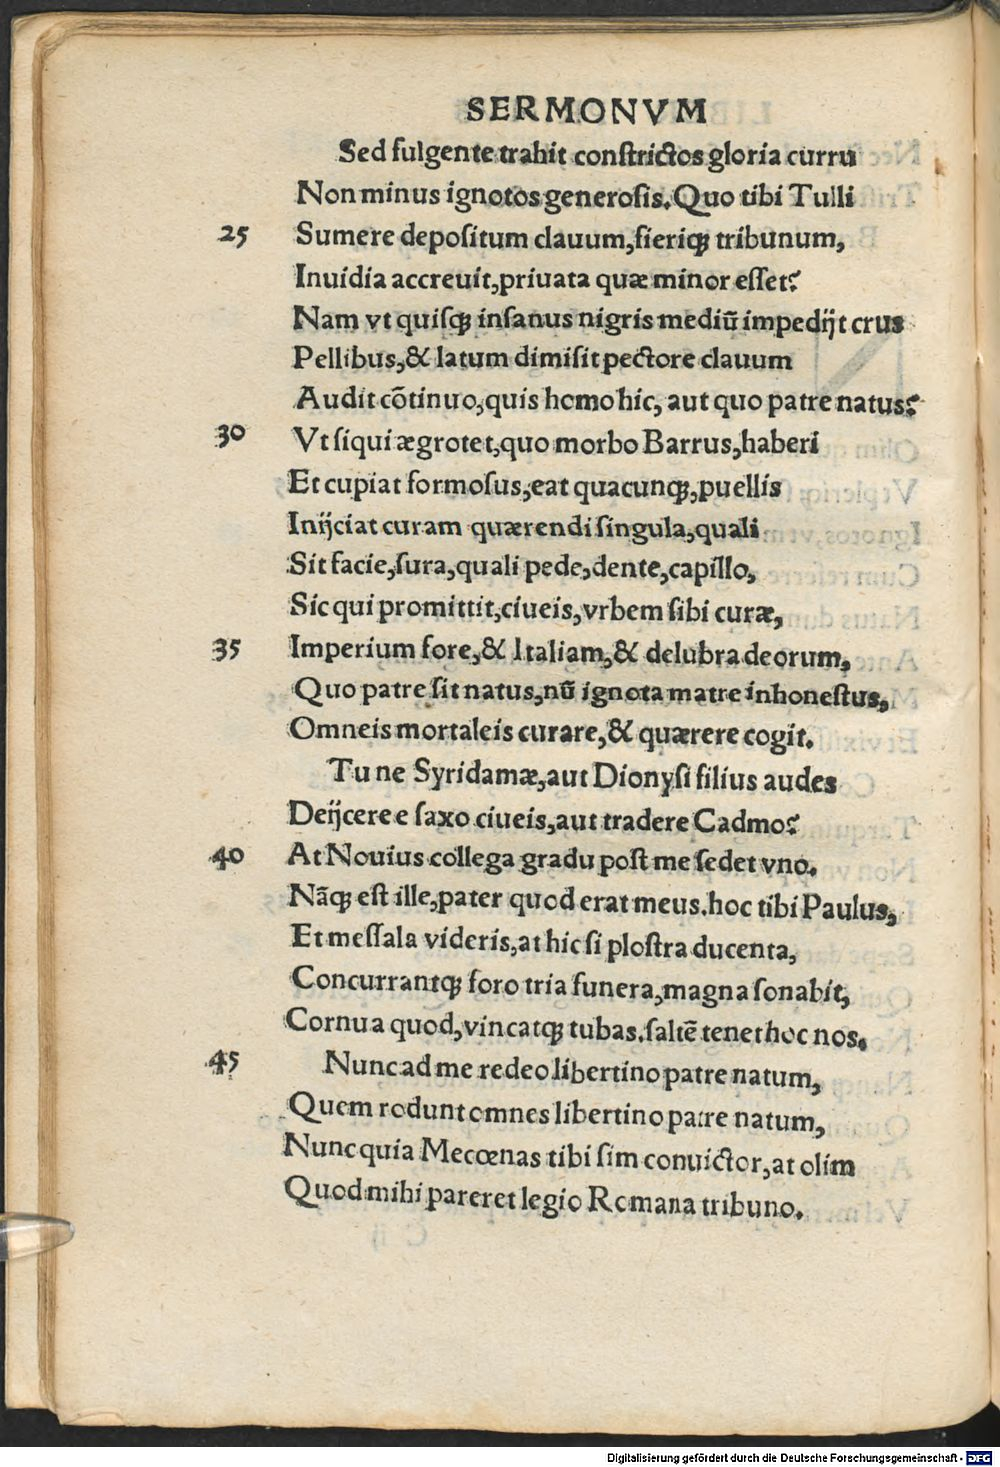 SERMONVM
Sed fulgente trahit constrictos gloria curru
Non minus ignotos generosis. Quo tibi Tulli
25 Sumere depositum clauum, fieriq́; tribunum,
Inuidia accreuit, priuata quæ minor esset?
Nam vt quisq; insanus nigris mediũ impedijt crus
Pellibus, & latum dimisit pectore clauum
Audit cõtinuo, quis homo hic, aut quo patre natus?
30 Vt siqui ægrotet, quo morbo Barrus, haberi
Et cupiat formosus, eat quacunq;, puellis
Inijciat curam quærendi singula, quali
Sit facie, sura, quali pede, dente, capillo,
Sic qui promittit, ciueis, vrbem sibi curæ,
35 Imperium fore, & Italiam, & delubra deorum,
Quo patre sit natus, nũ ignota matre inhonestus,
Omneis mortaleis curare, & quærere cogit.
Tu ne Syri damæ, aut Dionysi filius audes
Deijcere e saxo ciueis, aut tradere Cadmo?
40 At Nouius collega gradu post me sedet vno.
Nãq; est ille, pater quod erat meus. hoc tibi Paulus,
Et messala videris, at hic si plostra ducenta,
Concurrantq; foro tria funera, magna sonabit,
Cornua quod, vincatq; tubas. saltẽ tenet hoc nos.
45 Nunc ad me redeo libertino patre natum,
Quem rodunt omnes libertino patre natum,
Nunc quia Mecœnas tibi sim conuictor, at olim
Quod mihi pareret legio Romana tribuno.
Digitalisierung gefördert durch die Deutsche Forschungsgemeinschaft - DFG